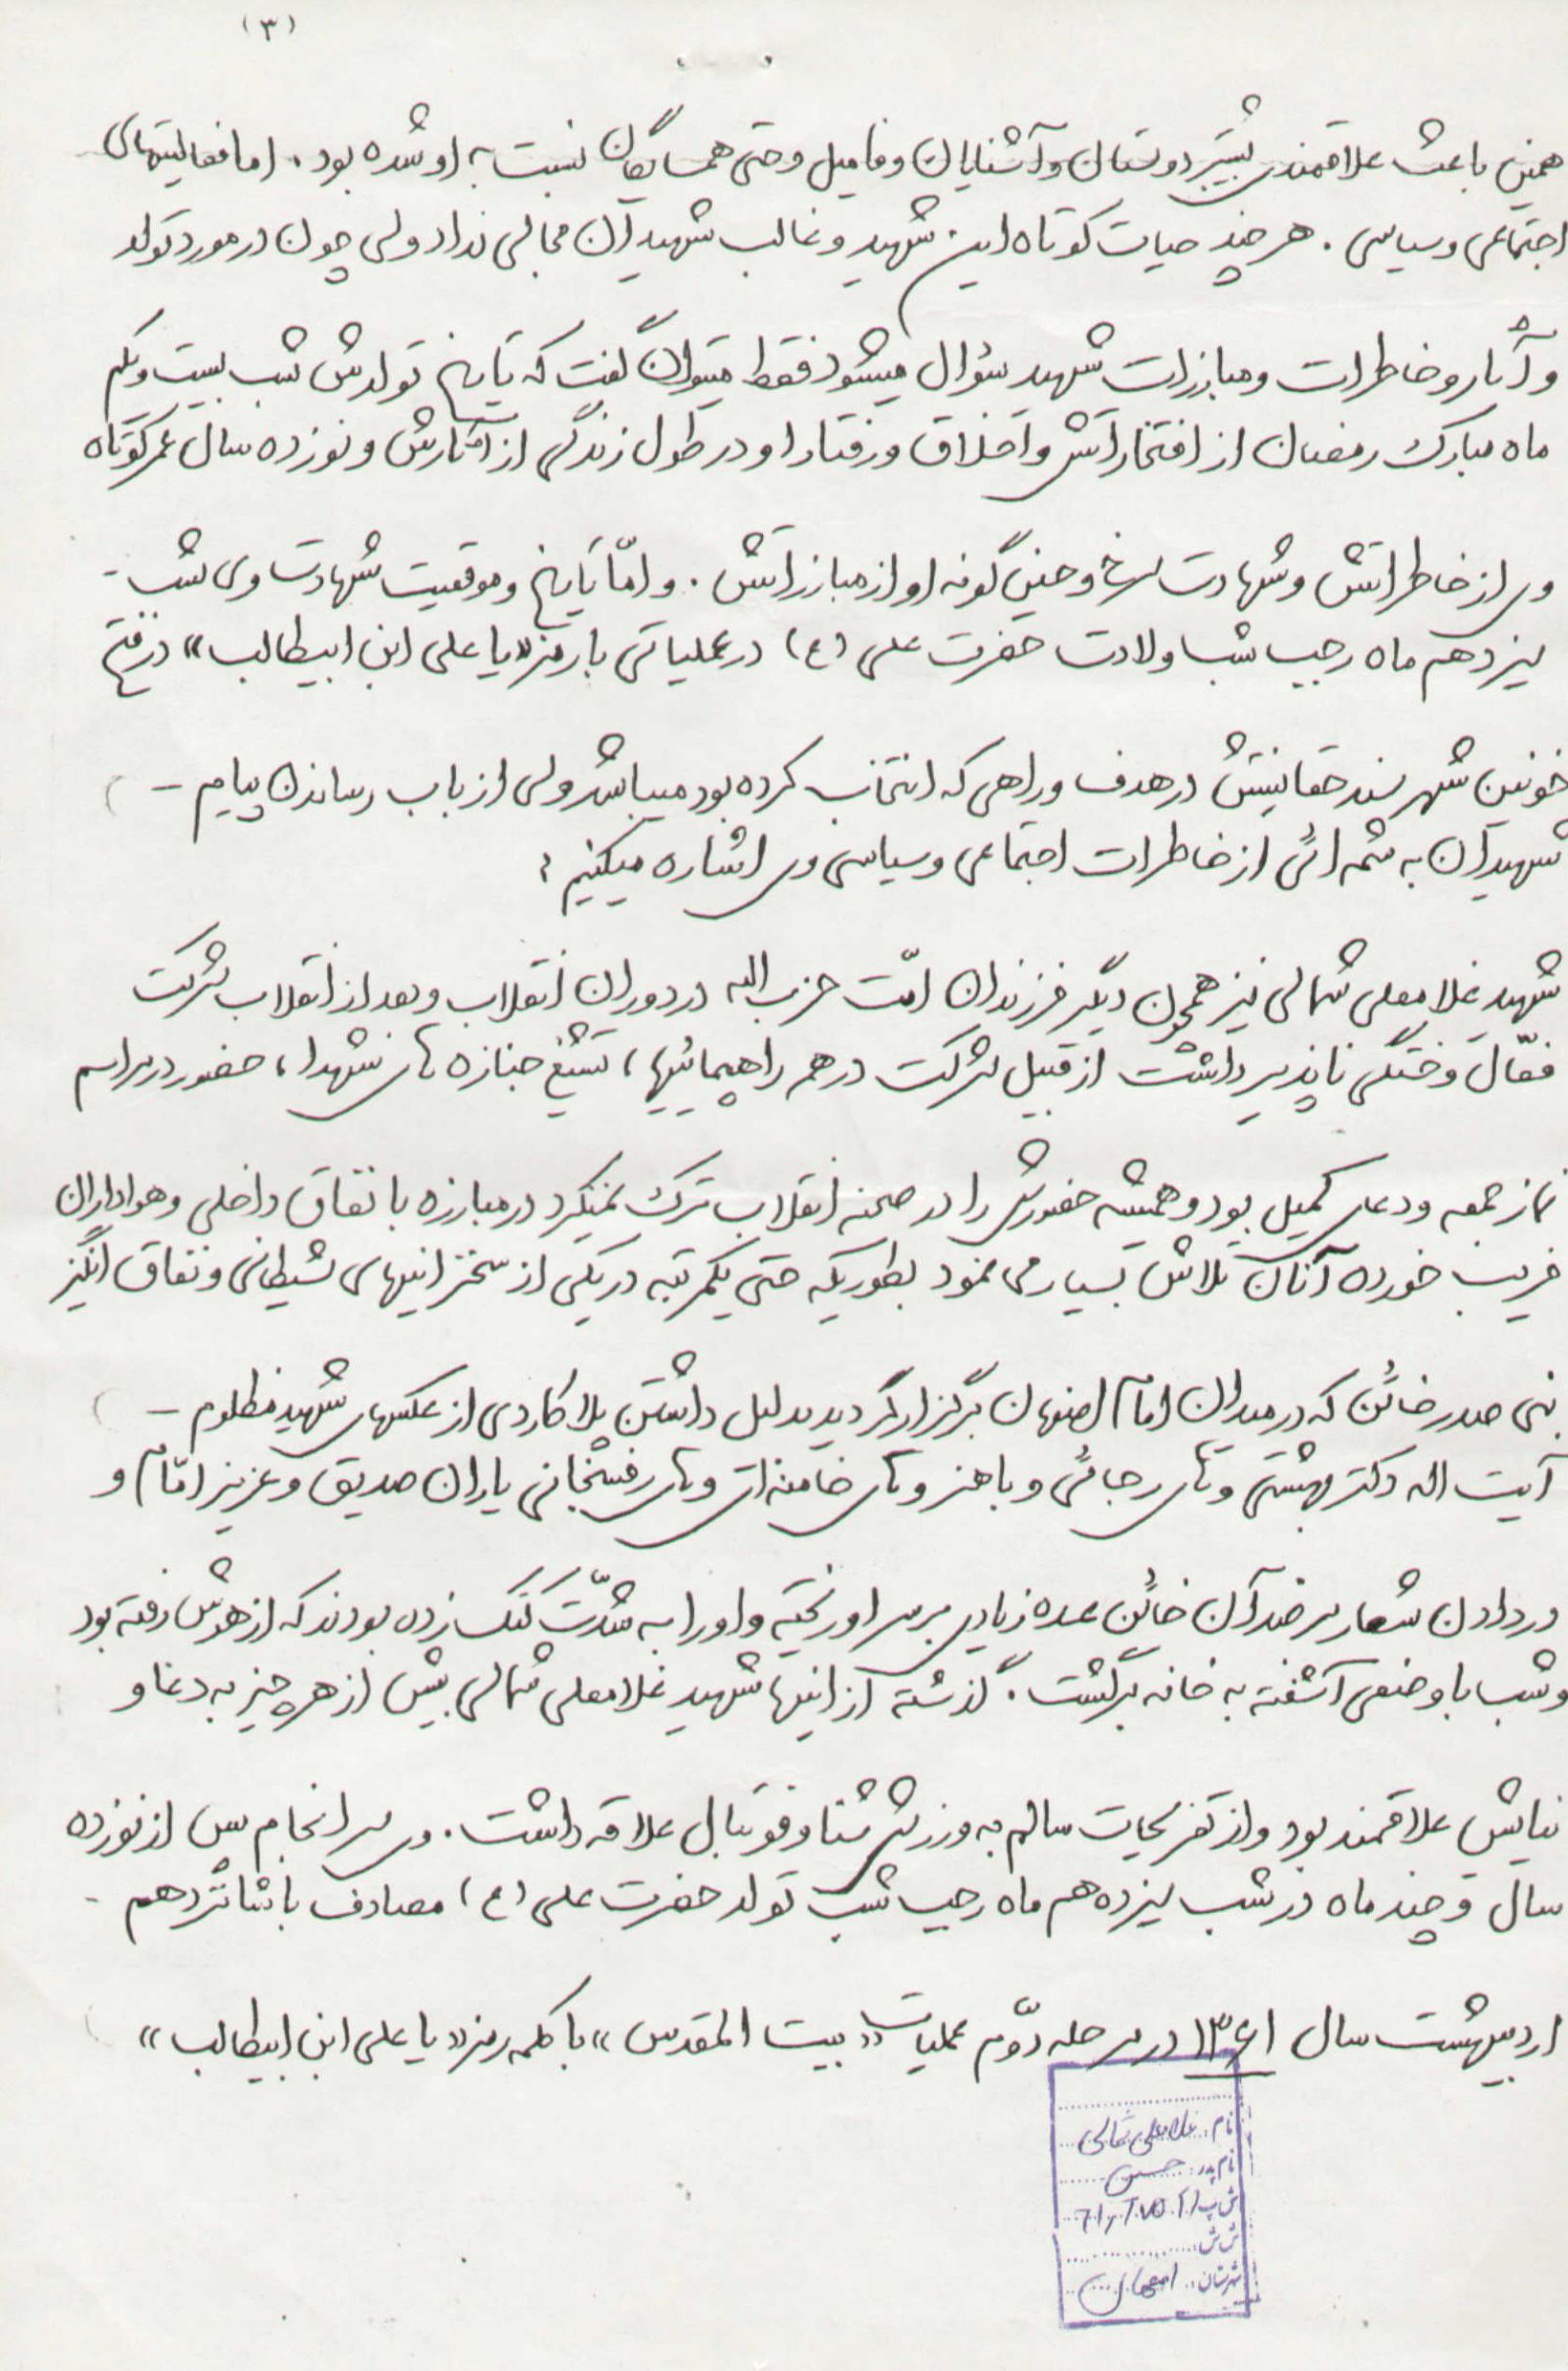 (۳)
همین باعث علاقمندی بیشتر دوستان و آشنایان و فامیل و حتی همسایگان نسبت به او شده بود. اما فعالیتهای
اجتماعی و سیاسی. هر چند حیات کوتاه این شهید و غالب شهیدان مجالی نداد ولی چون در مورد تولد
و آثار و خاطرات و مبارزات شهید سؤال میشود فقط میتوان گفت که تاریخ تولدش شب بیست و یکم
ماه مبارک رمضان از افتخاراتش و اخلاق و رفتار او در طول زندگی از آثارش و نوزده سال عمر کوتاه
وی از خاطراتش و شهادت سرخ و حسین گونه او از مبارزاتش. و امّا تاریخ و موقعیت شهادت وی شب -
سیزدهم ماه رجب شب ولادت حضرت علی (ع) در عملیاتی با رمز «یا علی ابن ابیطالب» در فتح
خونین شهر سند حقانیتش در هدف و راهی که انتخاب کرده بود میباشد ولی از باب رساندن پیام -
شهیدان به شمه ائی از خاطرات اجتماعی و سیاسی وی اشاره میکنیم :
شهید غلامعلی شمالی نیز همچون دیگر فرزندان امّت حزب الله در دوران انقلاب و بعد از انقلاب شرکت
فعّال و خستگی ناپذیر داشت از قبیل شرکت در همه راهپیمائیها، تشیع جنازه های شهدا، حضور در مراسم
نماز جمعه و دعای کمیل بود و همیشه حضورش را در صحنه انقلاب ترک نمیکرد در مبارزه با نفاق داخلی و هواداران
فریب خورده آنان تلاش بسیار می نمود بطوریکه حتی یکمرتبه در یکی از سخنرانیهای شیطانی و نفاق انگیز
بنی صدر خائن که در میدان امام اصفهان برگزار گردید بدلیل داشتن پلاکاردی از عکسهای شهید مظلوم -
آیت اله دکتر بهشتی و آقای رجائی و باهنر و آقای خامنه ای و آقای رفسنجانی یاران صدیق و عزیز امام و
در دادن شعار بر ضد آن خائن عده زیادی بر سر او ریخته و او را به شدّت کتک زده بودند که از هوش رفته بود
و شب با وضعی آشفته به خانه برگشت. گذشته از اینها شهید غلامعلی شمالی بیش از هر چیز به دعا و
نیایش علاقمند بود و از تفریحات سالم به ورزش شنا و فوتبال علاقه داشت. وی سرانجام پس از نوزده
سال و چند ماه در شب سیزدهم ماه رجب شب تولد حضرت علی (ع) مصادف با شانزدهم -
اردیبهشت سال ۱۳۶۱ در مرحله دوّم عملیات «بیت المقدس» با کلمه رمز «یا علی ابن ابیطالب»
نام: غلامعلی شمالی
نام پدر: حسن
ش پ
ش ش:
شهرستان: اصفهان